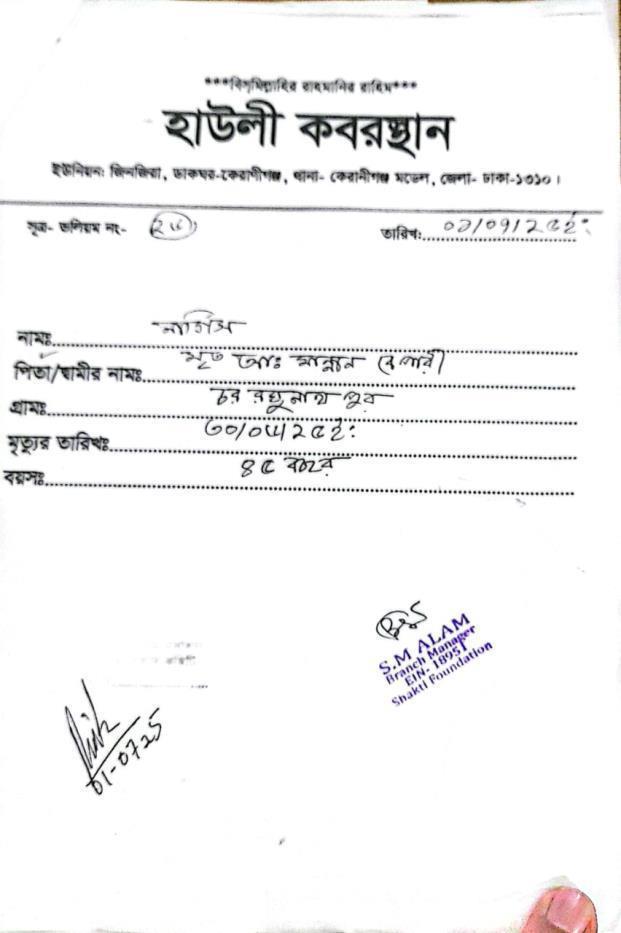 ***বিসমিল্লাহির রাহমানির রাহিম***
হাউলী কবরস্থান
ইউনিয়ন: জিনজিরা, ডাকঘর-কেরানীগঞ্জ, থানা- কেরানীগঞ্জ মডেল, জেলা- ঢাকা-১৩১০।
সূত্র- ক্রমিক নং-
তারিখ: ০১/০৭/২৫ইং
নামঃ নার্গিস
পিতা/স্বামীর নামঃ মৃত আঃ মান্নান বেপারী
গ্রামঃ চর রঘুনাথ পুর
মৃত্যুর তারিখঃ ৩০/০৬/২৫ইং
বয়সঃ ৪৫ বছর
S.M ALAM
Branch Manager
EIN- 18951
Shakti Foundation
01-07-25